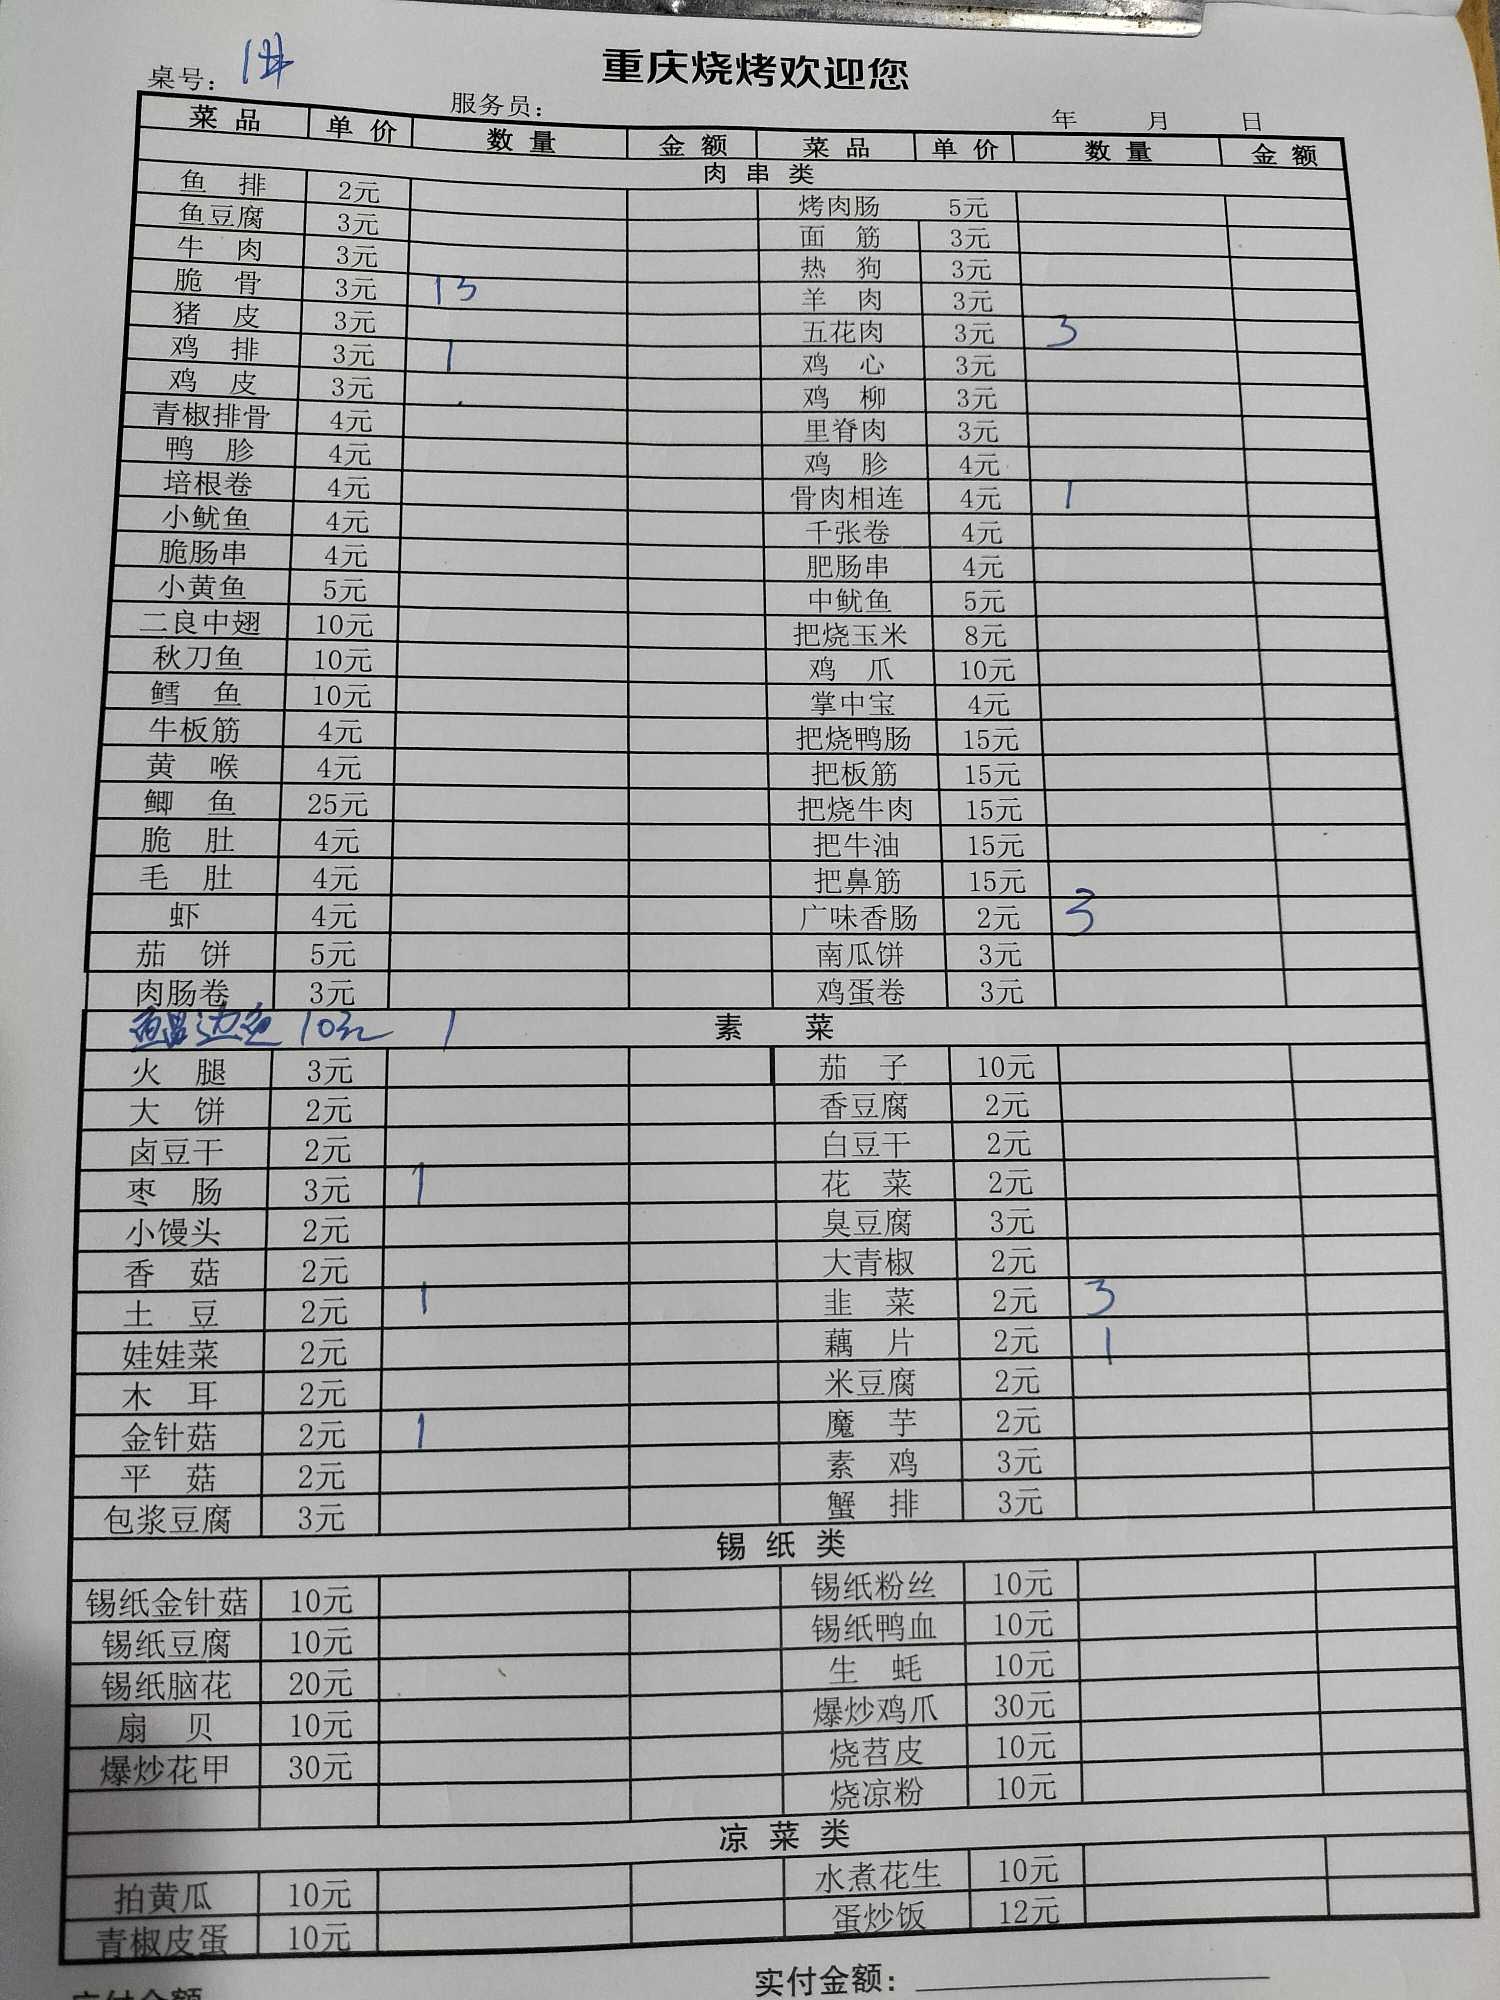 重庆烧烤欢迎您
桌号: 1# 服务员: 年 月 日
菜品 单价 数量 金额 菜品 单价 数量 金额
肉串类
鱼排 2元 烤肉肠 5元
鱼豆腐 3元 面筋 3元
牛肉 3元 热狗 3元
脆骨 3元 13 羊肉 3元
猪皮 3元 五花肉 3元 3
鸡排 3元 1 鸡心 3元
鸡皮 3元 鸡柳 3元
青椒排骨 4元 里脊肉 3元
鸭胗 4元 鸡胗 4元
培根卷 4元 骨肉相连 4元 1
小鱿鱼 4元 千张卷 4元
脆肠串 4元 肥肠串 4元
小黄鱼 5元 中鱿鱼 5元
二良中翅 10元 把烧玉米 8元
秋刀鱼 10元 鸡爪 10元
鳕鱼 10元 掌中宝 4元
牛板筋 4元 把烧鸭肠 15元
黄喉 4元 把板筋 15元
鲫鱼 25元 把烧牛肉 15元
脆肚 4元 把牛油 15元
毛肚 4元 把鼻筋 15元
虾 4元 广味香肠 2元 3
茄饼 5元 南瓜饼 3元
肉肠卷 3元 鸡蛋卷 3元
10元 1 素菜
火腿 3元 茄子 10元
大饼 2元 香豆腐 2元
卤豆干 2元 白豆干 2元
枣肠 3元 1 花菜 2元
小馒头 2元 臭豆腐 3元
香菇 2元 大青椒 2元
土豆 2元 1 韭菜 2元 3
娃娃菜 2元 藕片 2元 1
木耳 2元 米豆腐 2元
金针菇 2元 1 魔芋 2元
平菇 2元 素鸡 3元
包浆豆腐 3元 蟹排 3元
锡纸类
锡纸金针菇 10元 锡纸粉丝 10元
锡纸豆腐 10元 锡纸鸭血 10元
锡纸脑花 20元 生蚝 10元
扇贝 10元 爆炒鸡爪 30元
爆炒花甲 30元 烧苕皮 10元
烧凉粉 10元
凉菜类
拍黄瓜 10元 水煮花生 10元
青椒皮蛋 10元 蛋炒饭 12元
实付金额: